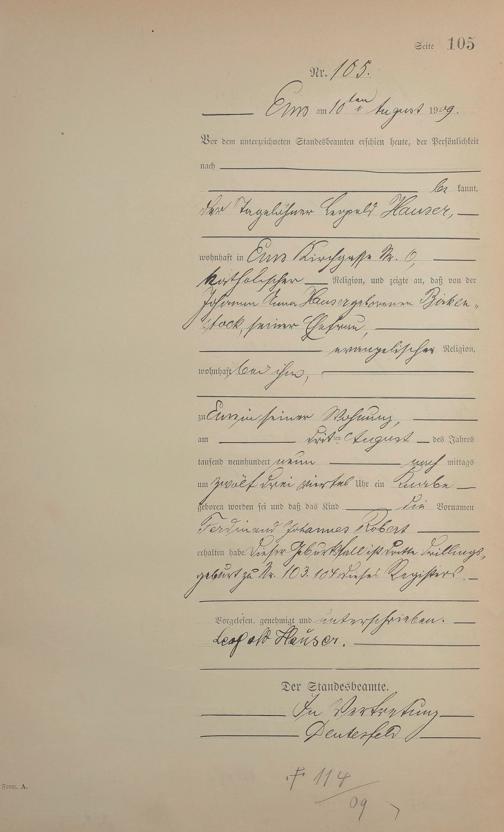 Seite 105
Nr. 105.
Ems am 10ten August 1909.
Vor dem unterzeichneten Standesbeamten erschien heute, der Persönlichkeit
nach
be kannt,
der Tagelöhner Leopold Hauser,
wohnhaft in Ems Kirchgasse Nr.
katholischer Religion, und zeigte an, daß von der
Johanna Anna Hauser geborenen Böcken-
stock, seiner Ehefrau,
evangelischer Religion,
wohnhaft bei ihm,
zu Ems in seiner Wohnung,
am August des Jahres
tausend neunhundert neun nach mittags
um zwölf drei viertel Uhr ein Knabe
geboren worden sei und daß das Kind die Vornamen
Ferdinand Johannes Robert
erhalten habe. Dieser Geburtsfall ist dritte Drillings-
geburt zu Nr. 103. 104 dieses Registers.
Vorgelesen, genehmigt und unterschrieben.
Leopold Hauser.
Der Standesbeamte.
In Vertretung
Form. A.
114
09